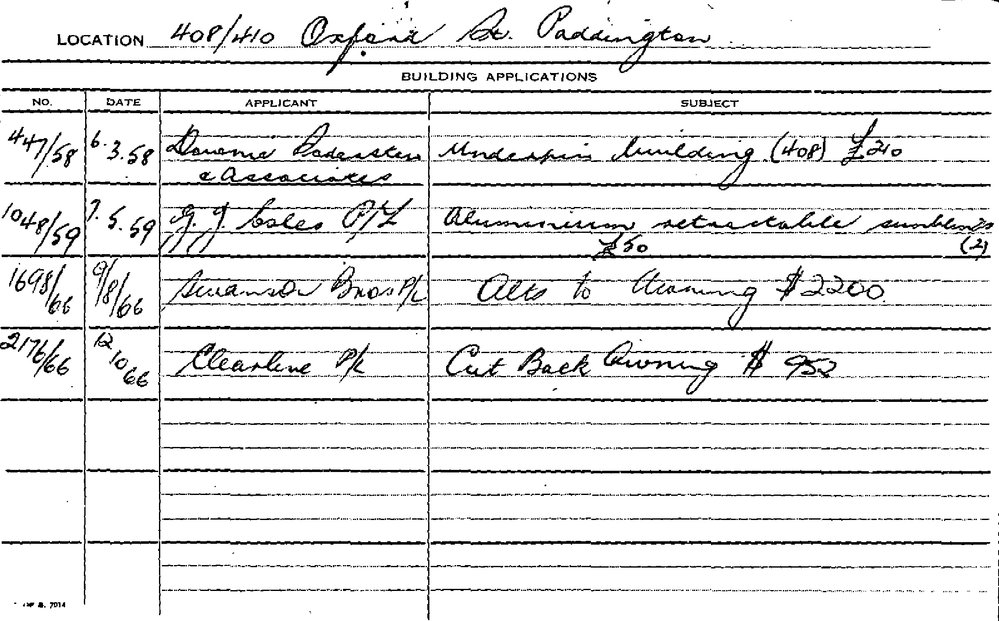 LOCATION 408/410 Oxford St. Paddington
BUILDING APPLICATIONS
NO. DATE APPLICANT SUBJECT
447/58 6.3.58 Underpin building (408) £210
& Associates
1048/59 7.5.59 G. J. Coles P/L Aluminium retractable sunblinds
£50 (2)
1698/66 9/8/66 Swanson Bros P/L Alts to Awning $2200
2176/66 12/10/66 Clearline P/L Cut Back Awning $952